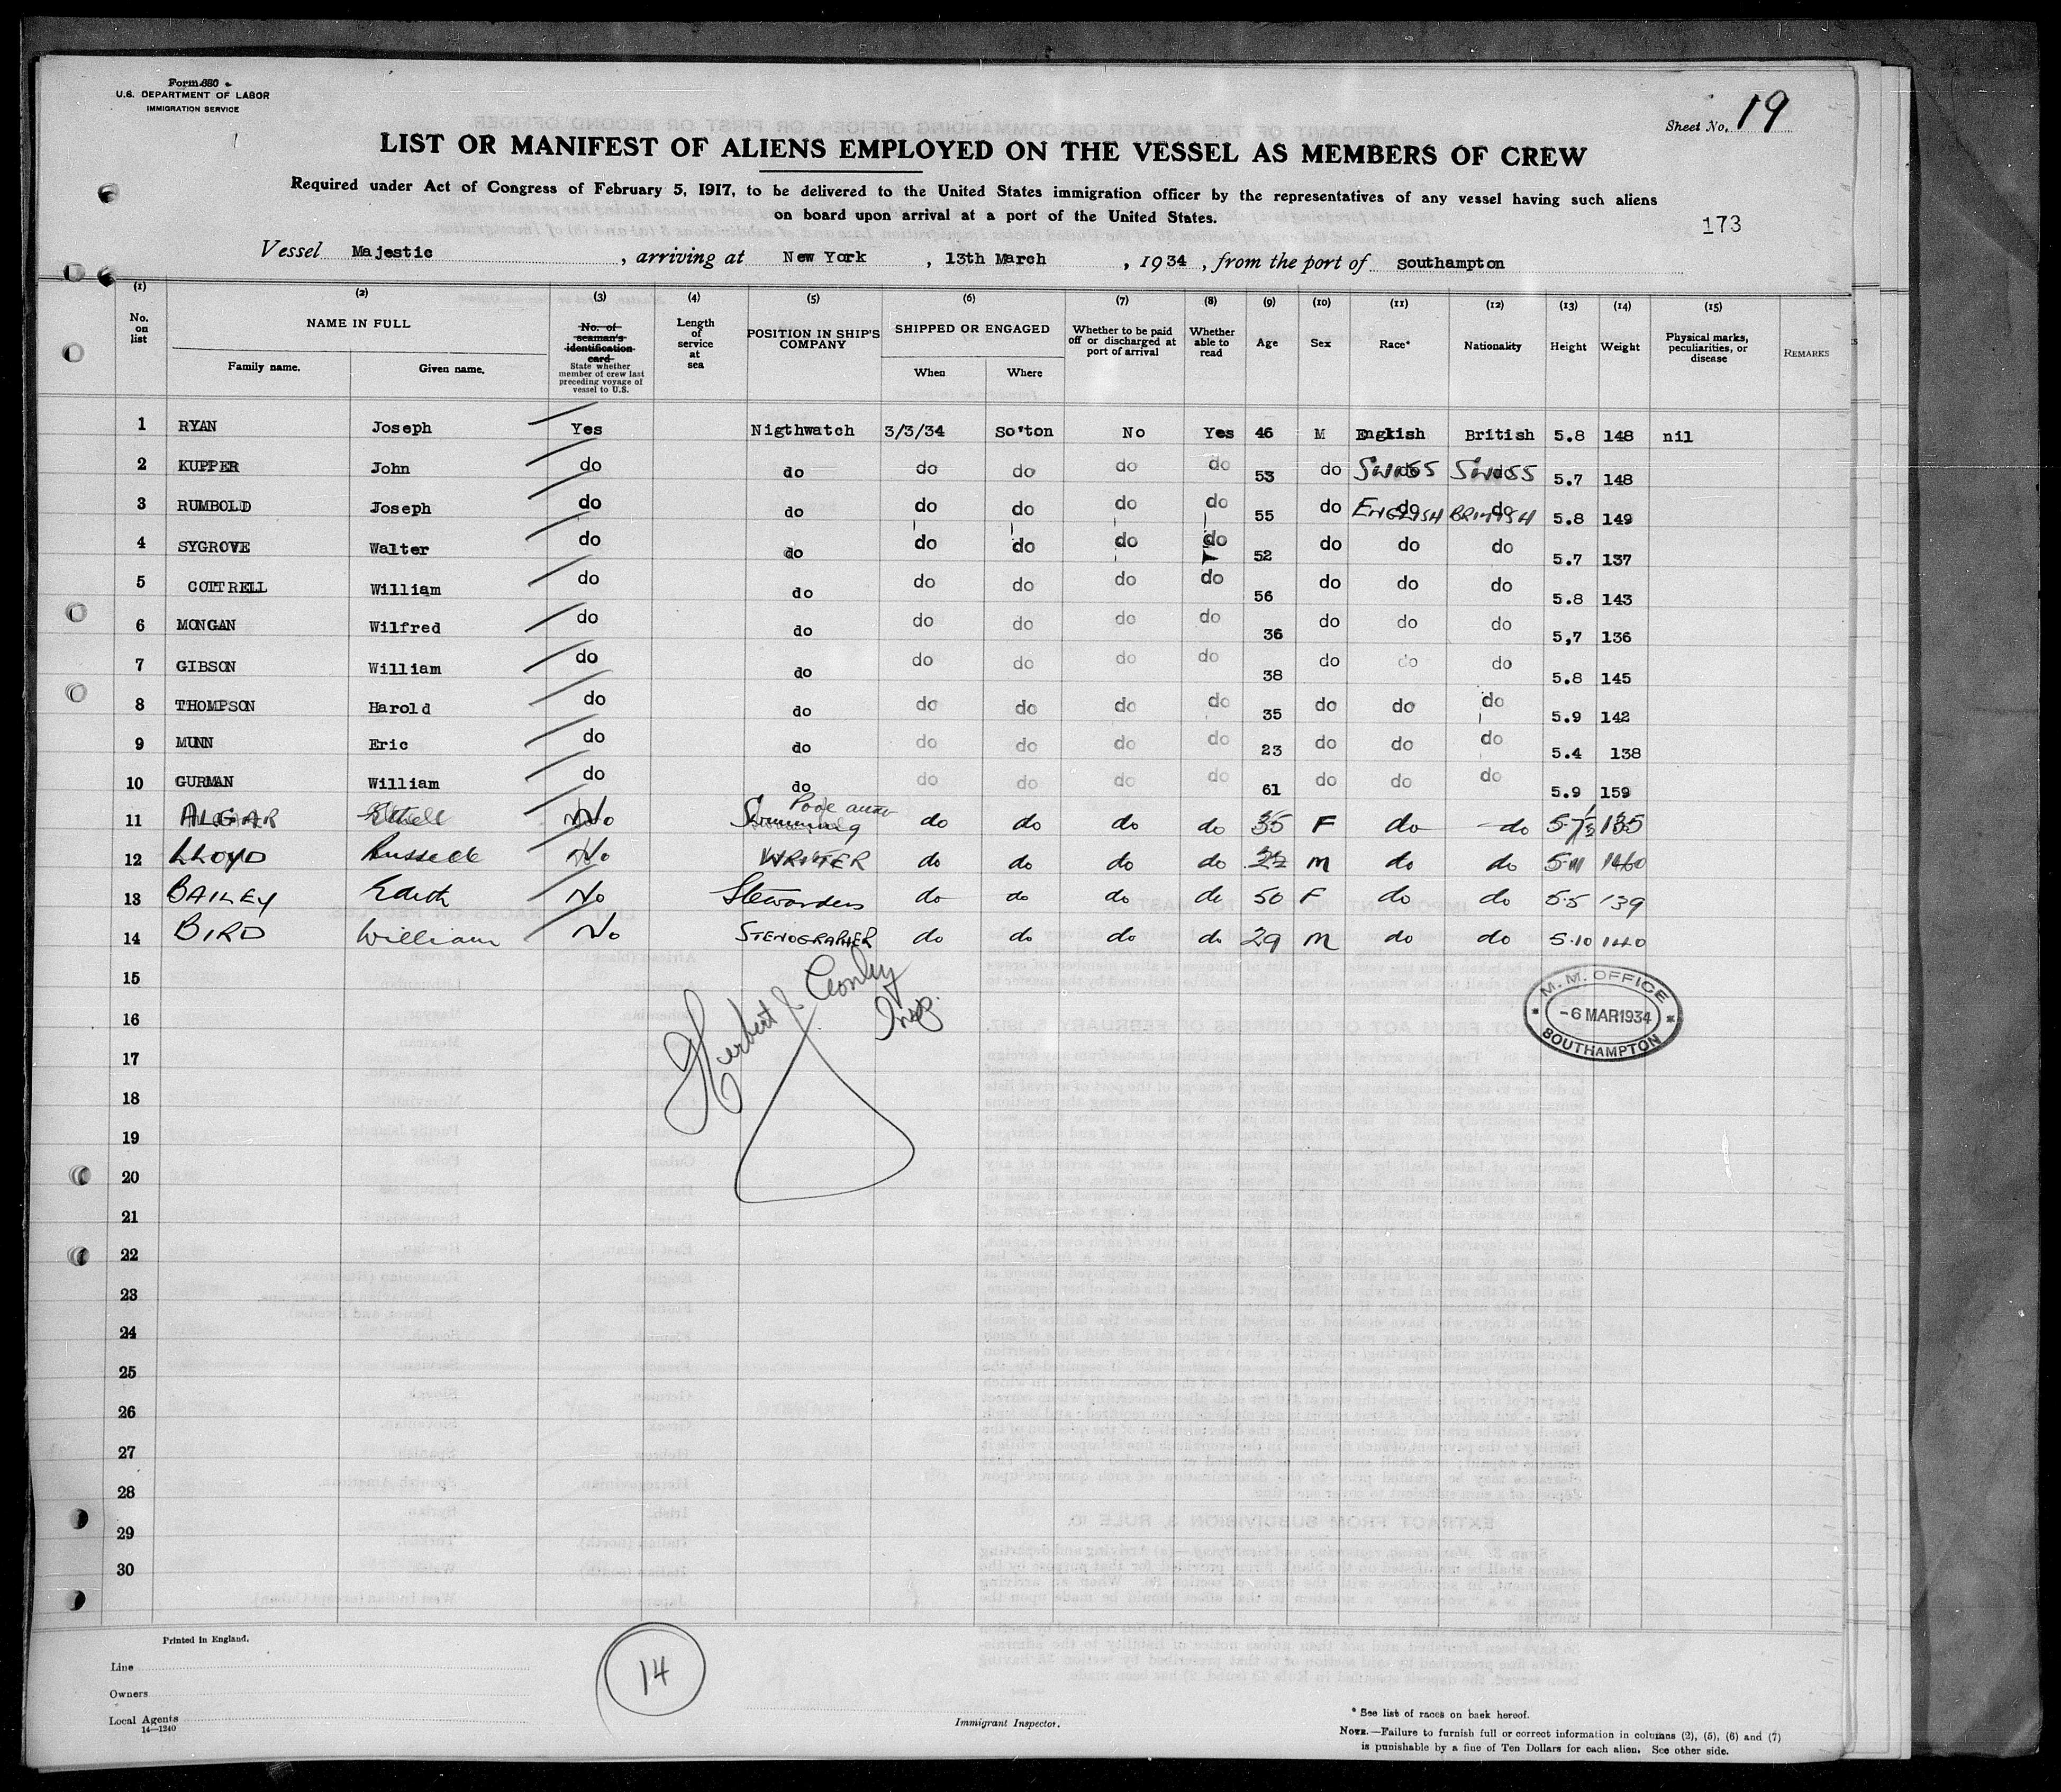 Form 680
U.S. DEPARTMENT OF LABOR
IMMIGRATION SERVICE
Sheet No. 19
LIST OR MANIFEST OF ALIENS EMPLOYED ON THE VESSEL AS MEMBERS OF CREW
Required under Act of Congress of February 5, 1917, to be delivered to the United States immigration officer by the representatives of any vessel having such aliens
on board upon arrival at a port of the United States.
173
Vessel Majestic, arriving at New York, 13th March, 1934, from the port of Southampton
(1) (2) (3) (4) (5) (6) (7) (8) (9) (10) (11) (12) (13) (14) (15)
No. on list NAME IN FULL Family name. Given name. No. of seaman's identification card State whether member of crew last preceding voyage of vessel to U.S. Length of service at sea POSITION IN SHIP'S COMPANY SHIPPED OR ENGAGED When Where Whether to be paid off or discharged at port of arrival Whether able to read Age Sex Race* Nationality Height Weight Physical marks, peculiarities, or disease REMARKS
1 RYAN Joseph Yes Nigthwatch 3/3/34 So'ton No Yes 46 M English British 5.8 148 nil
2 KUPPER John do do do do do do 53 do SWISS SWISS 5.7 148
3 RUMBOLD Joseph do do do do do do 55 do ENGLISH BRITISH 5.8 149
4 SYGROVE Walter do do do do do do 52 do do do 5.7 137
5 COTTRELL William do do do do do do 56 do do do 5.8 143
6 MONGAN Wilfred do do do do do do 36 do do do 5,7 136
7 GIBSON William do do do do do do 38 do do do 5.8 145
8 THOMPSON Harold do do do do do do 35 do do do 5.9 142
9 MUNN Eric do do do do do do 23 do do do 5.4 138
10 GURMAN William do do do do do do 61 do do do 5.9 159
11 ALGAR Ethel No Swimming Pool do do do do 35 F do do 5.7½ 135
12 LLOYD Russell No WRITER do do do do M do do 5.11
13 BAILEY Edith No Stewardess do do do do 50 F do do 5.5 139
14 BIRD William No STENOGRAPHER do do do do 29 M do do 5.10 140
15
16
17
18
19
20
21
22
23
24
25
26
27
28
29
30
Herbert Insp.
M.M. OFFICE
-6 MAR 1934
SOUTHAMPTON
Printed in England.
Line
Owners
Local Agents
14—1240
14
Immigrant Inspector.
* See list of races on back hereof.
NOTE.—Failure to furnish full or correct information in columns (2), (5), (6) and (7)
is punishable by a fine of Ten Dollars for each alien. See other side.